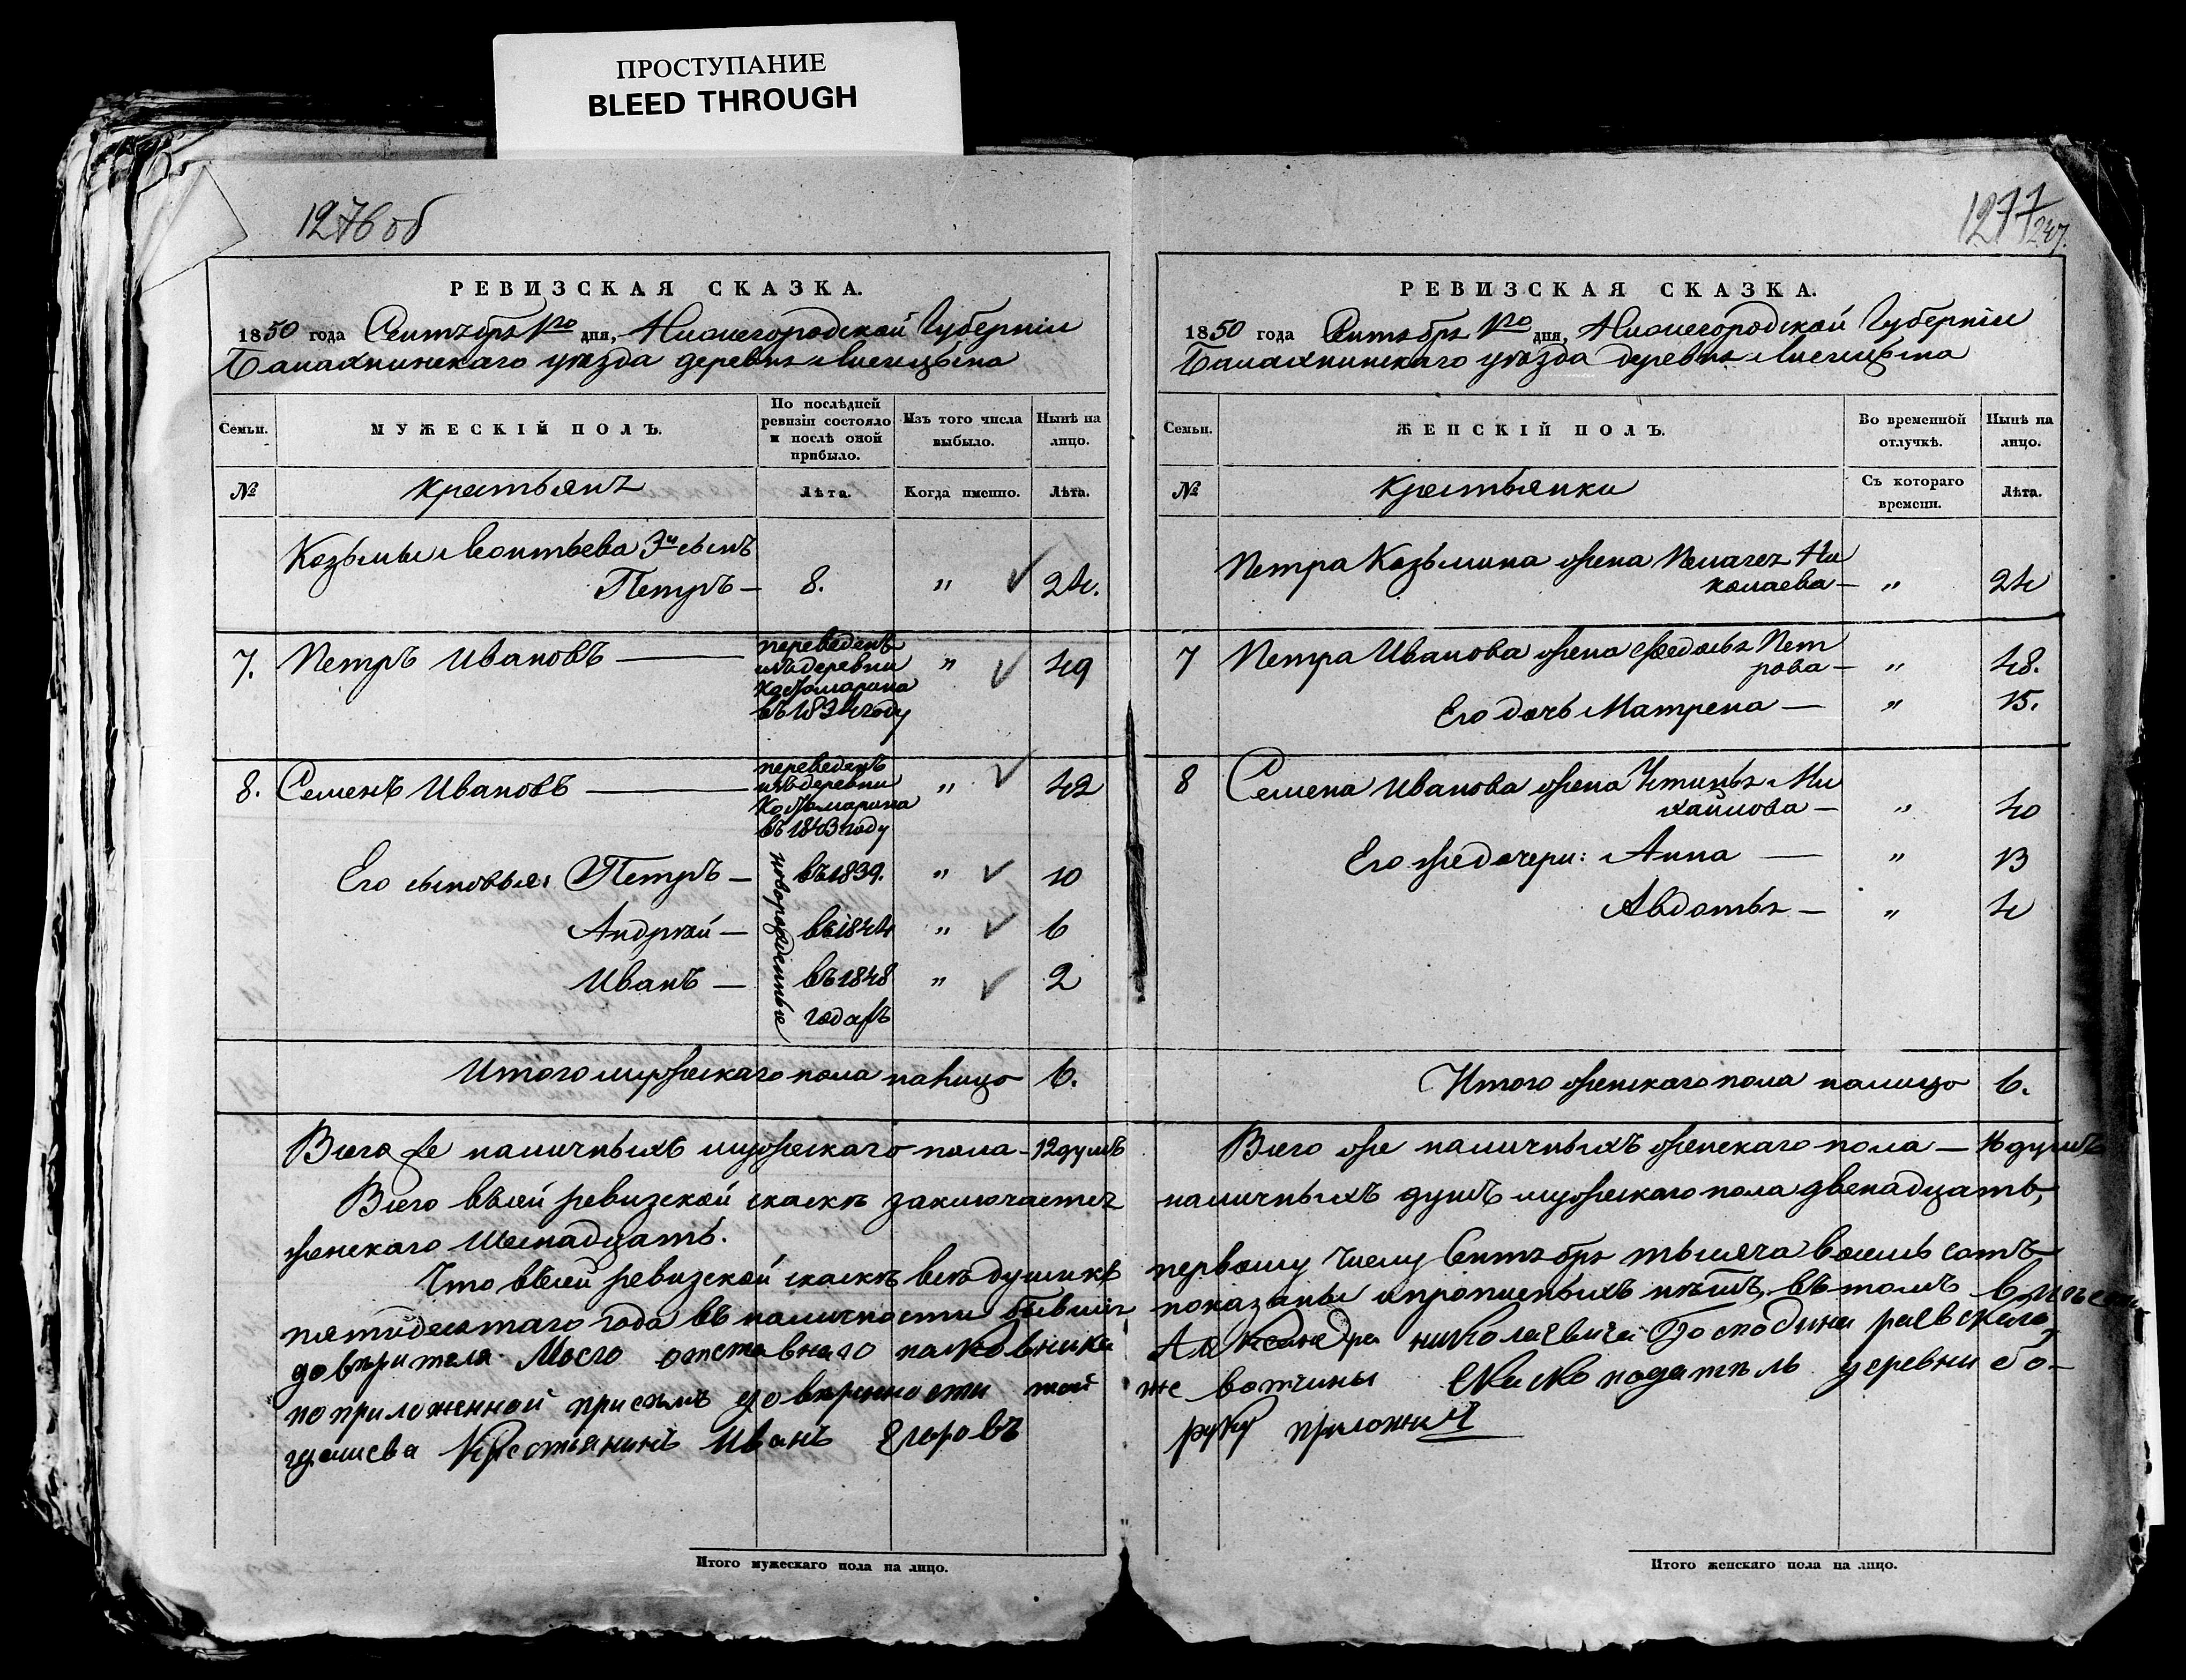 ПРОСТУПАНИЕ
BLEED THROUGH
1276 об
РЕВИЗСКАЯ СКАЗКА.
1850 года Сентября 1го дня, Нижегородской Губерніи
Балахнинскаго уѣзда деревня
Семьи.
МУЖЕСКІЙ ПОЛЪ.
По послѣдней ревизіи состояло и послѣ оной прибыло.
Изъ того числа выбыло.
Нынѣ на лицо.
№
Крестьянъ
Лѣта.
Когда именно.
Лѣта.
Козьмы Леонтьева 3й сынъ
Петръ — 8. " 24.
7. Петръ Ивановъ — переведенъ изъ деревни въ 1834 году " 49
8. Семенъ Ивановъ — переведенъ изъ деревни въ 1843 году " 42
новорожденные
Его сыновья: Петръ — въ 1839. " 10
Андрей — въ 1844 " 6
Иванъ — въ 1848 " 2
годахъ
Итого мужескаго пола налицо 6.
Всего же наличныхъ мужескаго пола — 12 душъ
Всего въ сей ревизской скаскѣ заключается
женскаго Шеснадцать.
Что въ сей ревизской скаскѣ всѣ души къ
пятидесятаго года въ наличности бывшія,
довѣрителя моего отставнаго полковника
по приложенной при семъ довѣренности той
гдашева Крестьянинъ Иванъ Егоровъ
Итого мужескаго пола на лицо.
1277
247.
РЕВИЗСКАЯ СКАЗКА.
1850 года Сентября 1го дня, Нижегородской Губерніи
Балахнинскаго уѣзда деревня
Семьи.
ЖЕНСКІЙ ПОЛЪ.
Во временной отлучкѣ.
Нынѣ на лицо.
№
Крестьянки
Съ котораго времени.
Лѣта.
Петра Козьмина жена Пелагея Ни
колаева — " 24
7 Петра Иванова жена Федосья Пет
рова — " 48.
Его дочь Матрена — " 15.
8 Семена Иванова жена Устинья Ми
хайлова — " 40
Его же дочери: Анна — " 13
Авдотья — " 4
Итого женскаго пола налицо 6.
Всего же наличныхъ женскаго пола — 16 душъ
наличныхъ душъ мужескаго пола двенадцать,
первому числу Сентября тысяча восемь сотъ
показаны и прописныхъ нѣтъ, въ томъ
Александра николаевича Господина раевскаго,
же вотчины Скаскоподатель деревни бо-
руку приложилъ
Итого женскаго пола на лицо.